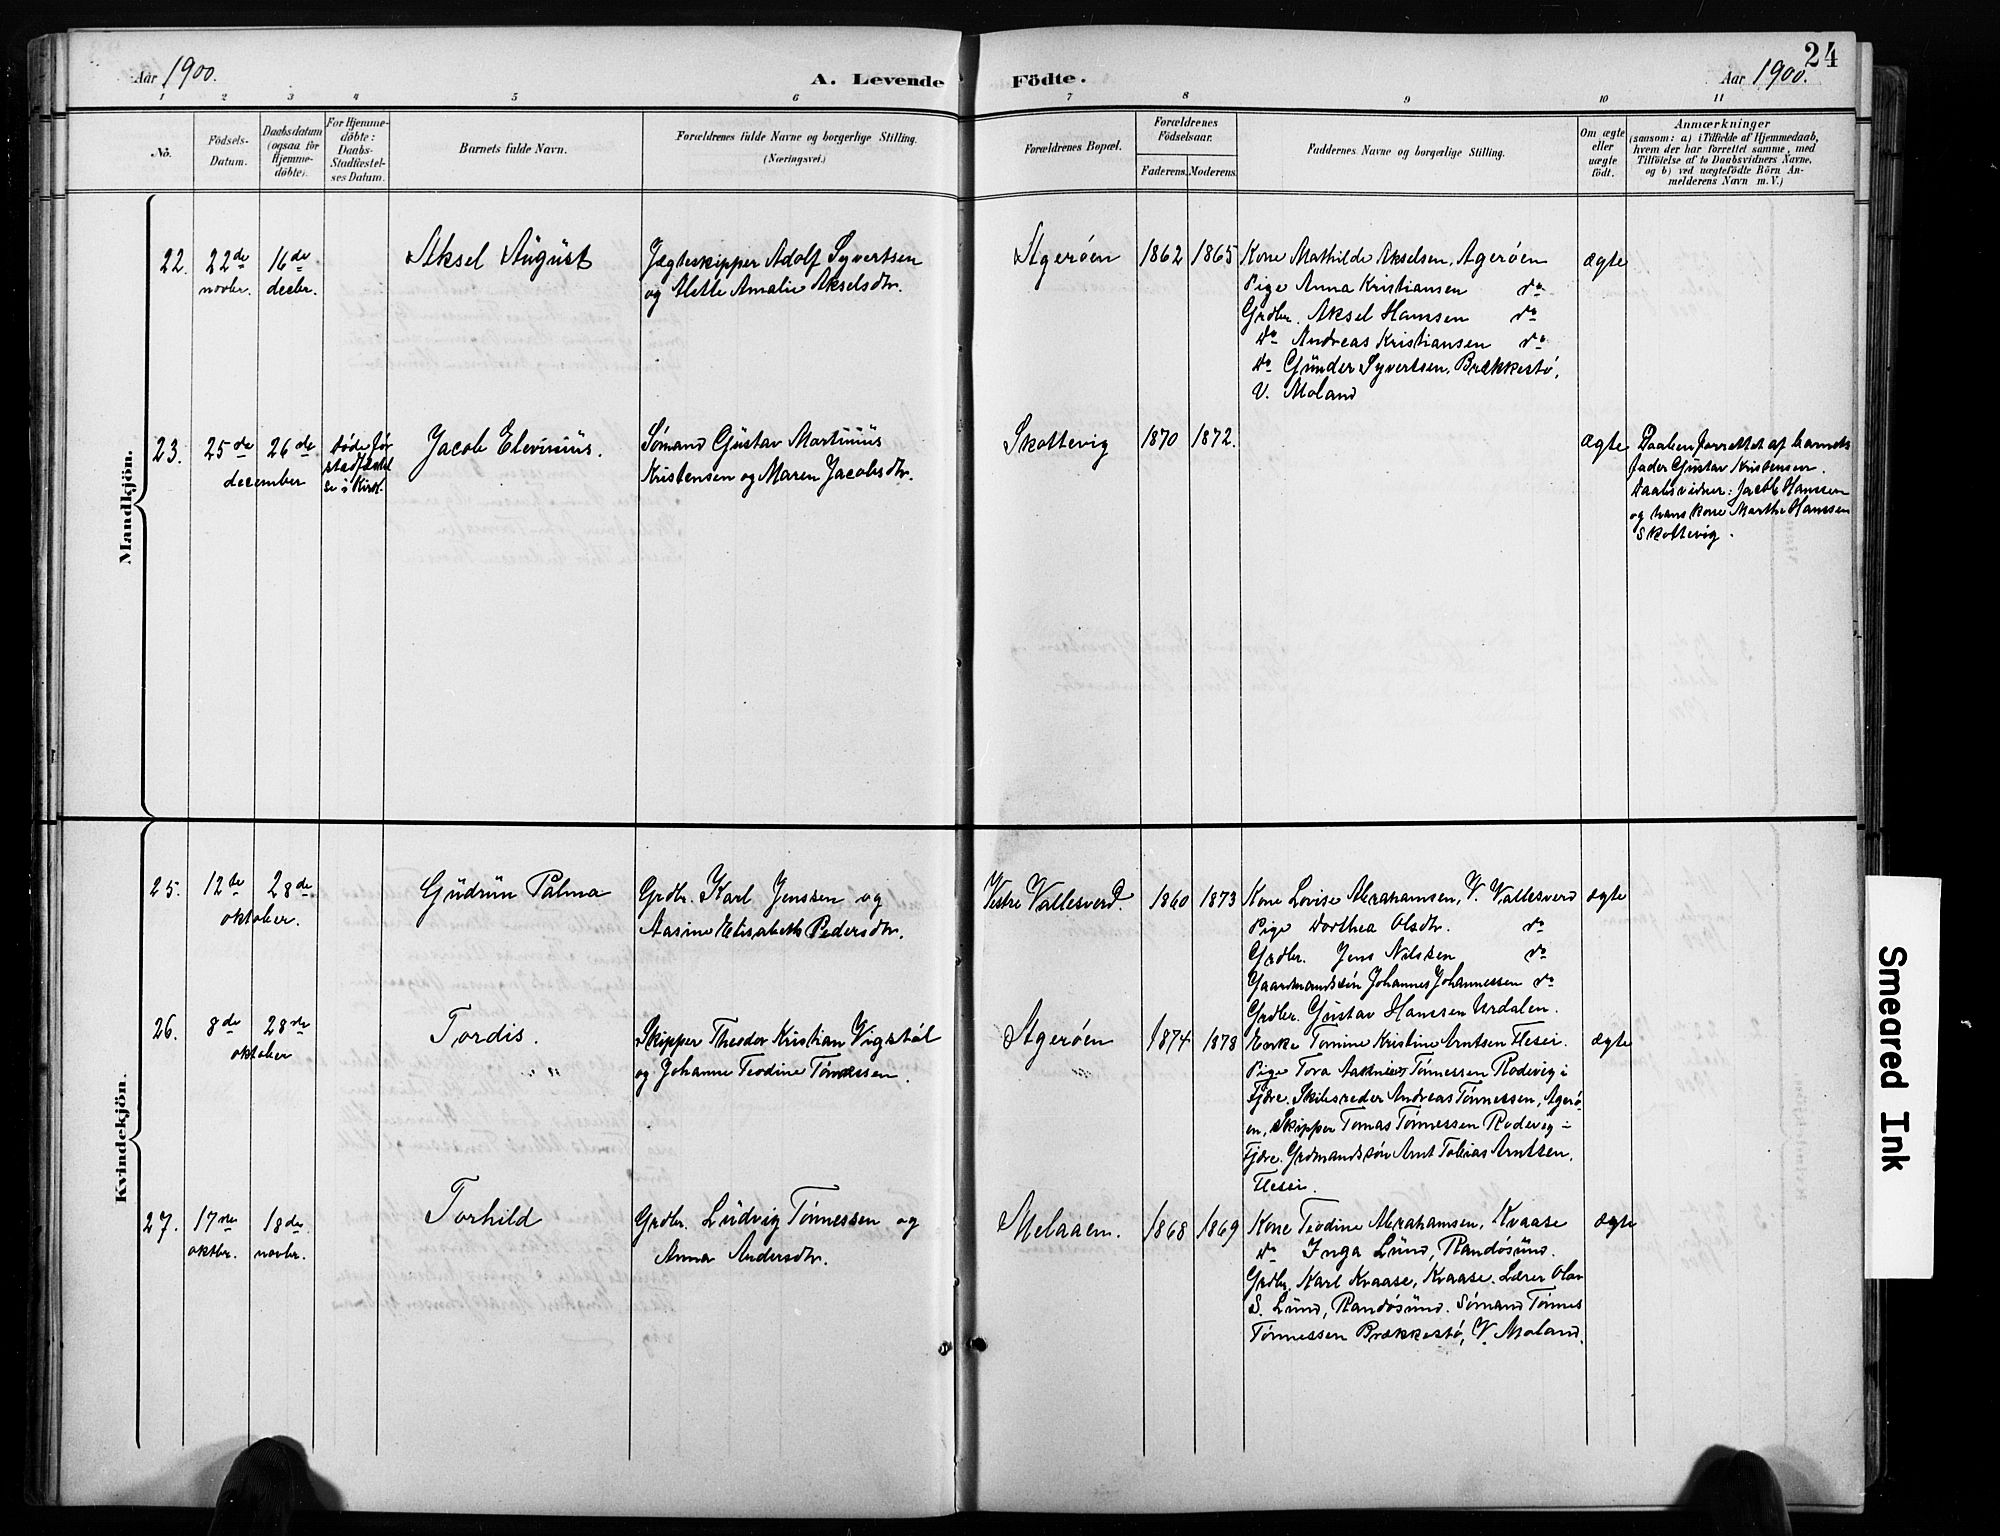 24
Aar 1900.
A. Levende Födte.
Aar 1900.
1 2 3 4 5 6 7 8 9 10 11
No.
Födsels-
Datum.
Daabsdatum
(ogsaa for
Hjemme-
döbte).
For Hjemme-
döbte:
Daabs-
Stadfæstel-
ses Datum.
Barnets fulde Navn.
Forældrenes fulde Navne og borgerlige Stilling.
(Næringsvei.)
Forældrenes Bopæl.
Forældrenes
Födselsaar.
Faderens. Moderens.
Faddernes Navne og borgerlige Stilling.
Om ægte
eller
uægte
födt.
Anmærkninger
(saasom: a) i Tilfælde af Hjemmedaab,
hvem der har forrettet samme, med
Tilföielse af to Daabsvidners Navne,
og b) ved uægtefödte Börn An-
melderens Navn m. V.)
Mandkjön.
22. 22de novbr. 16de decbr. Aksel August
Jægteskipper Adolf Syvertsen
og Alette Amalie Akselsdtr.
Agerøen 1862 1865
Kone Mathilde Akselsen, Agerøen
Pige Anna Kristiansen do
Grdbr. Aksel Hanssen do
do Andreas Kristiansen do
do Gunder Syvertsen, Brækkestø,
V. Moland
ægte
23. 25de 26de december
døde før
stadfæstel
se i Kirk.
Jacob Elevinius.
Sømand Gustav Martinius
Kristensen og Maren Jacobsdtr.
Skottevig 1870 1872.
ægte
Daaben forrettet af barnets
fader Gustav Kristensen.
Daabsvidner: Jacob Hanssen
og hans kone Marthe Hanssen
Skottevig.
Kvindekjön.
25. 12te 28de oktober. Gudrun Palma
Grdbr. Karl Jenssen og
Aasine Elisabeth Pedersdtr.
Vestre Vallesverd. 1860 1873
Kone Lovise Abrahamsen, V. Vallesverd
Pige Dorthea Olsdtr. do
Grdbr. Jens Nilssen do
Gaardmandssøn Johannes Johannessen do
Grdbr. Gustav Hanssen Urdalen.
ægte
26. 8de 28de oktober Tordis.
Skipper Theodor Kristian Vigstøl
og Johanne Teodine Tønnessen.
Agerøen 1874 1878
Enke Tomine Kristine Arntsen Flesei.
Pige Tova Tønnessen Rodevig i
Fjære. Skibsreder Andreas Tønnessen, Agerø-
en, Skipper Tomas Tønnessen Rodevig i
Fjære. Grdmandssøn Arnt Tobias Arntsen,
Flesei.
ægte
27. 17de oktbr. 18de novbr. Torhild
Grdbr. Ludvig Tønnessen og
Anna Andersdtr.
Melaaen. 1868 1869
Kone Teodine Abrahamsen, Kvaase
do Inga Lund, Randøsund.
Grdbr. Karl Kvaase, Kvaase. Lærer Olav
S. Lund, Randøsund. Sømand Tønnes
Tønnessen Brækkestø, V. Moland.
ægte
Smeared Ink